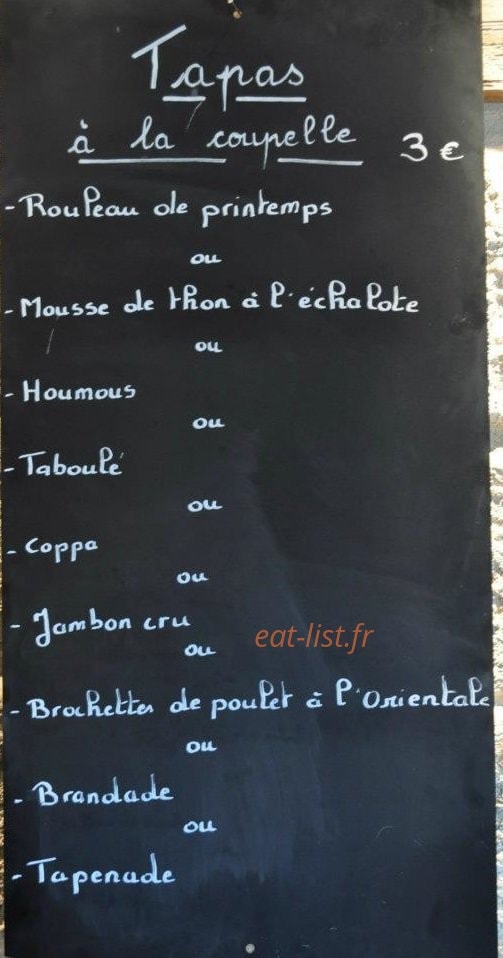 Tapas
à la coupelle 3 €
- Rouleau de printemps
ou
- Mousse de thon à l'échalote
ou
- Houmous
ou
- Taboulé
ou
- Coppa
ou
- Jambon cru
ou
eat-list.fr
- Brochettes de poulet à l'Orientale
ou
- Brandade
ou
- Tapenade